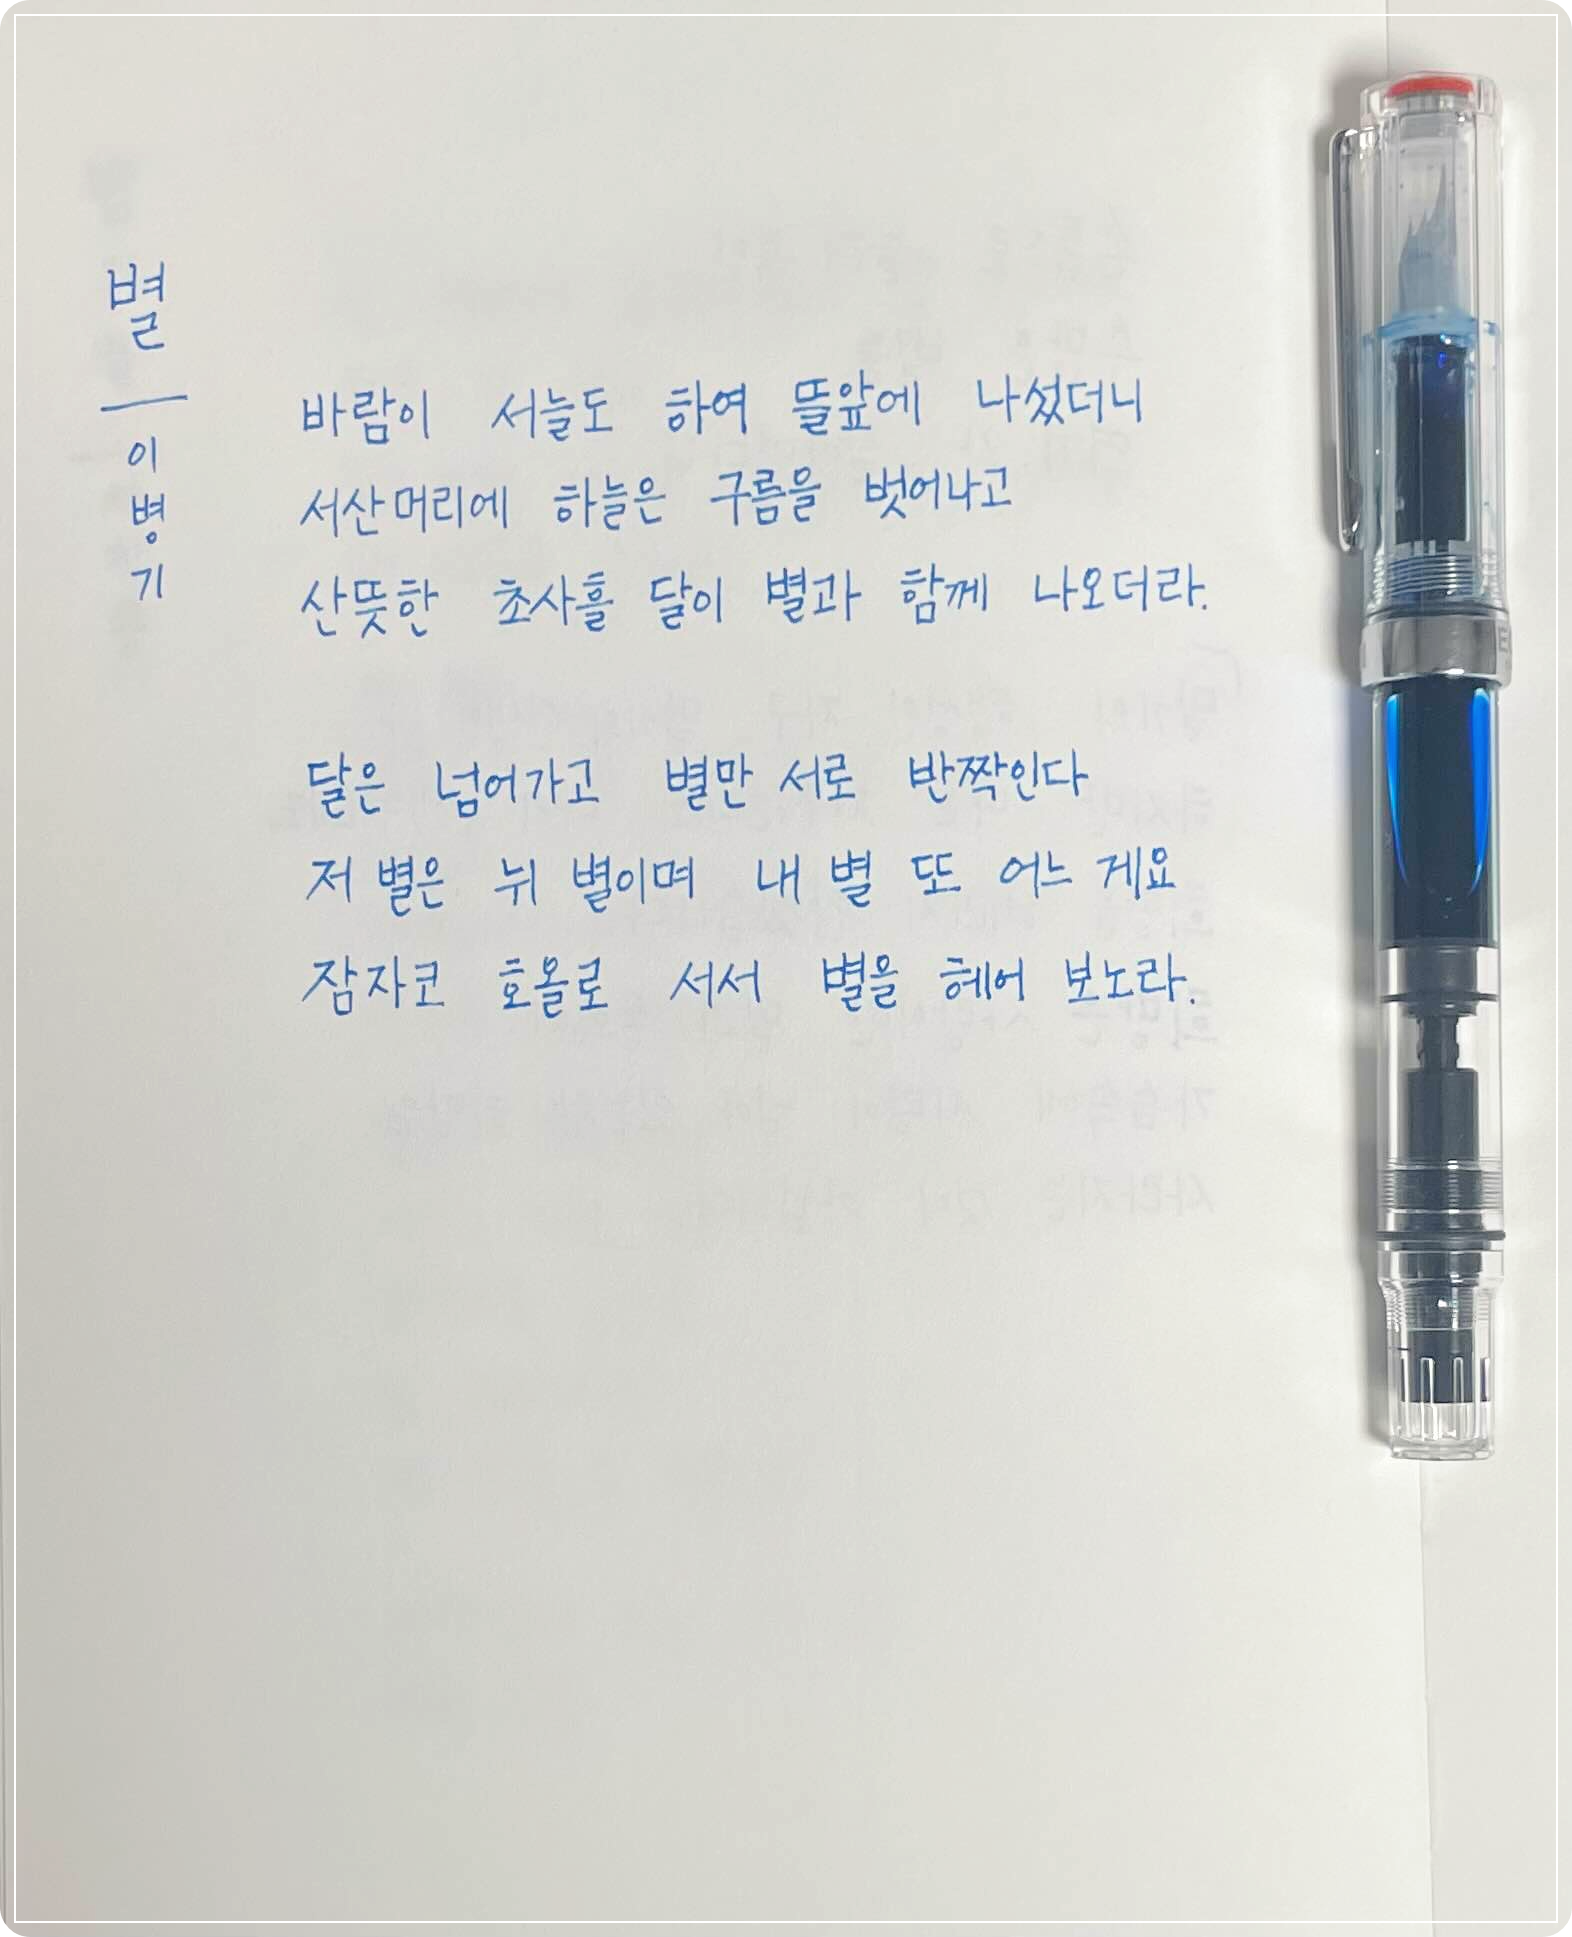 별
이병기
바람이 서늘도 하여 뜰앞에 나섰더니
서산머리에 하늘은 구름을 벗어나고
산뜻한 초사흘 달이 별과 함께 나오더라.
달은 넘어가고 별만 서로 반짝인다
저 별은 뉘 별이며 내 별 또 어느 게요
잠자코 호올로 서서 별을 헤어 보노라.